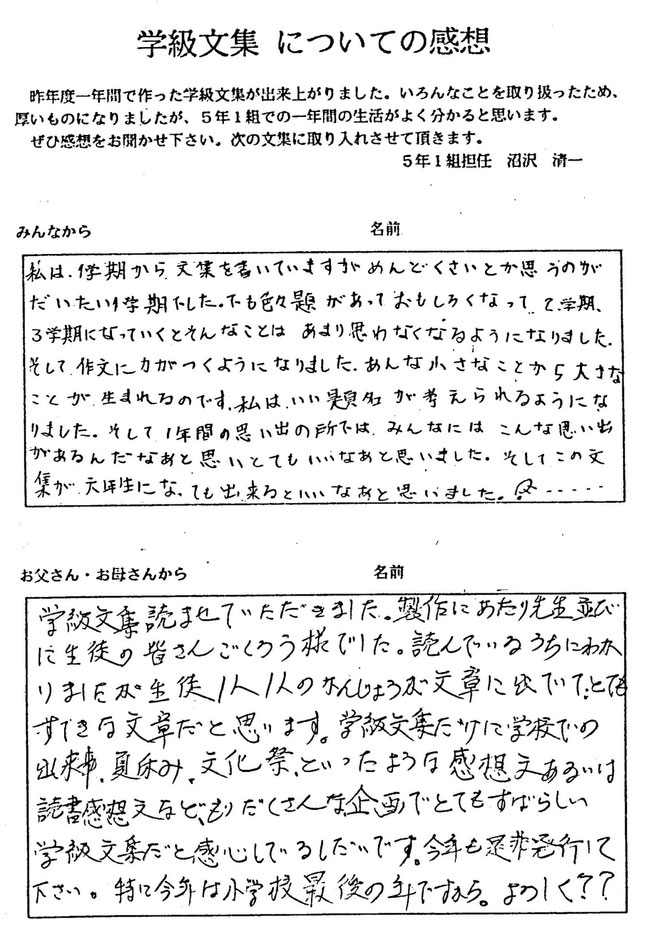 学級文集 についての感想
昨年度一年間で作った学級文集が出来上がりました。いろんなことを取り扱ったため、
厚いものになりましたが、5年1組での一年間の生活がよく分かると思います。
ぜひ感想をお聞かせ下さい。次の文集に取り入れさせて頂きます。
5年1組担任 沼沢 清一
みんなから 名前
私は、1学期から、文集を書いていますが めんどくさいとか思うのが
だいたい1学期でした。でも色々題があっておもしろくなって、2学期、
3学期になっていくとそんなことは あまり思わなくなるようになりました。
そして、作文に力がつくようになりました。あんな小さなことから大きな
ことが、生まれるのです。私は、いい題名が考えられるようにな
りました。そして、1年間の思い出の所では、みんなには こんな思い出
があるんだなあと思いとてもいいなあと思いました。そしてこの文
集が、六年生にな、ても出来るといいなあと思いました。
お父さん・お母さんから 名前
学級文集読ませていただきました。製作にあたり先生並び
に生徒の皆さんごくろう様でした。読んでいるうちにわか
りましたが生徒1人1人のかんじょうが文章に出ていて、とても
すてきな文章だと思います。学級文集だけに学校での
出来事、夏休み、文化祭、といったような感想文あるいは
読書感想文など、もりだくさんな企画でとてもすばらしい
学級文集だと感心しているしだいです。今年も是非発行して
下さい。特に今年は小学校最後の年ですから。よろしく??